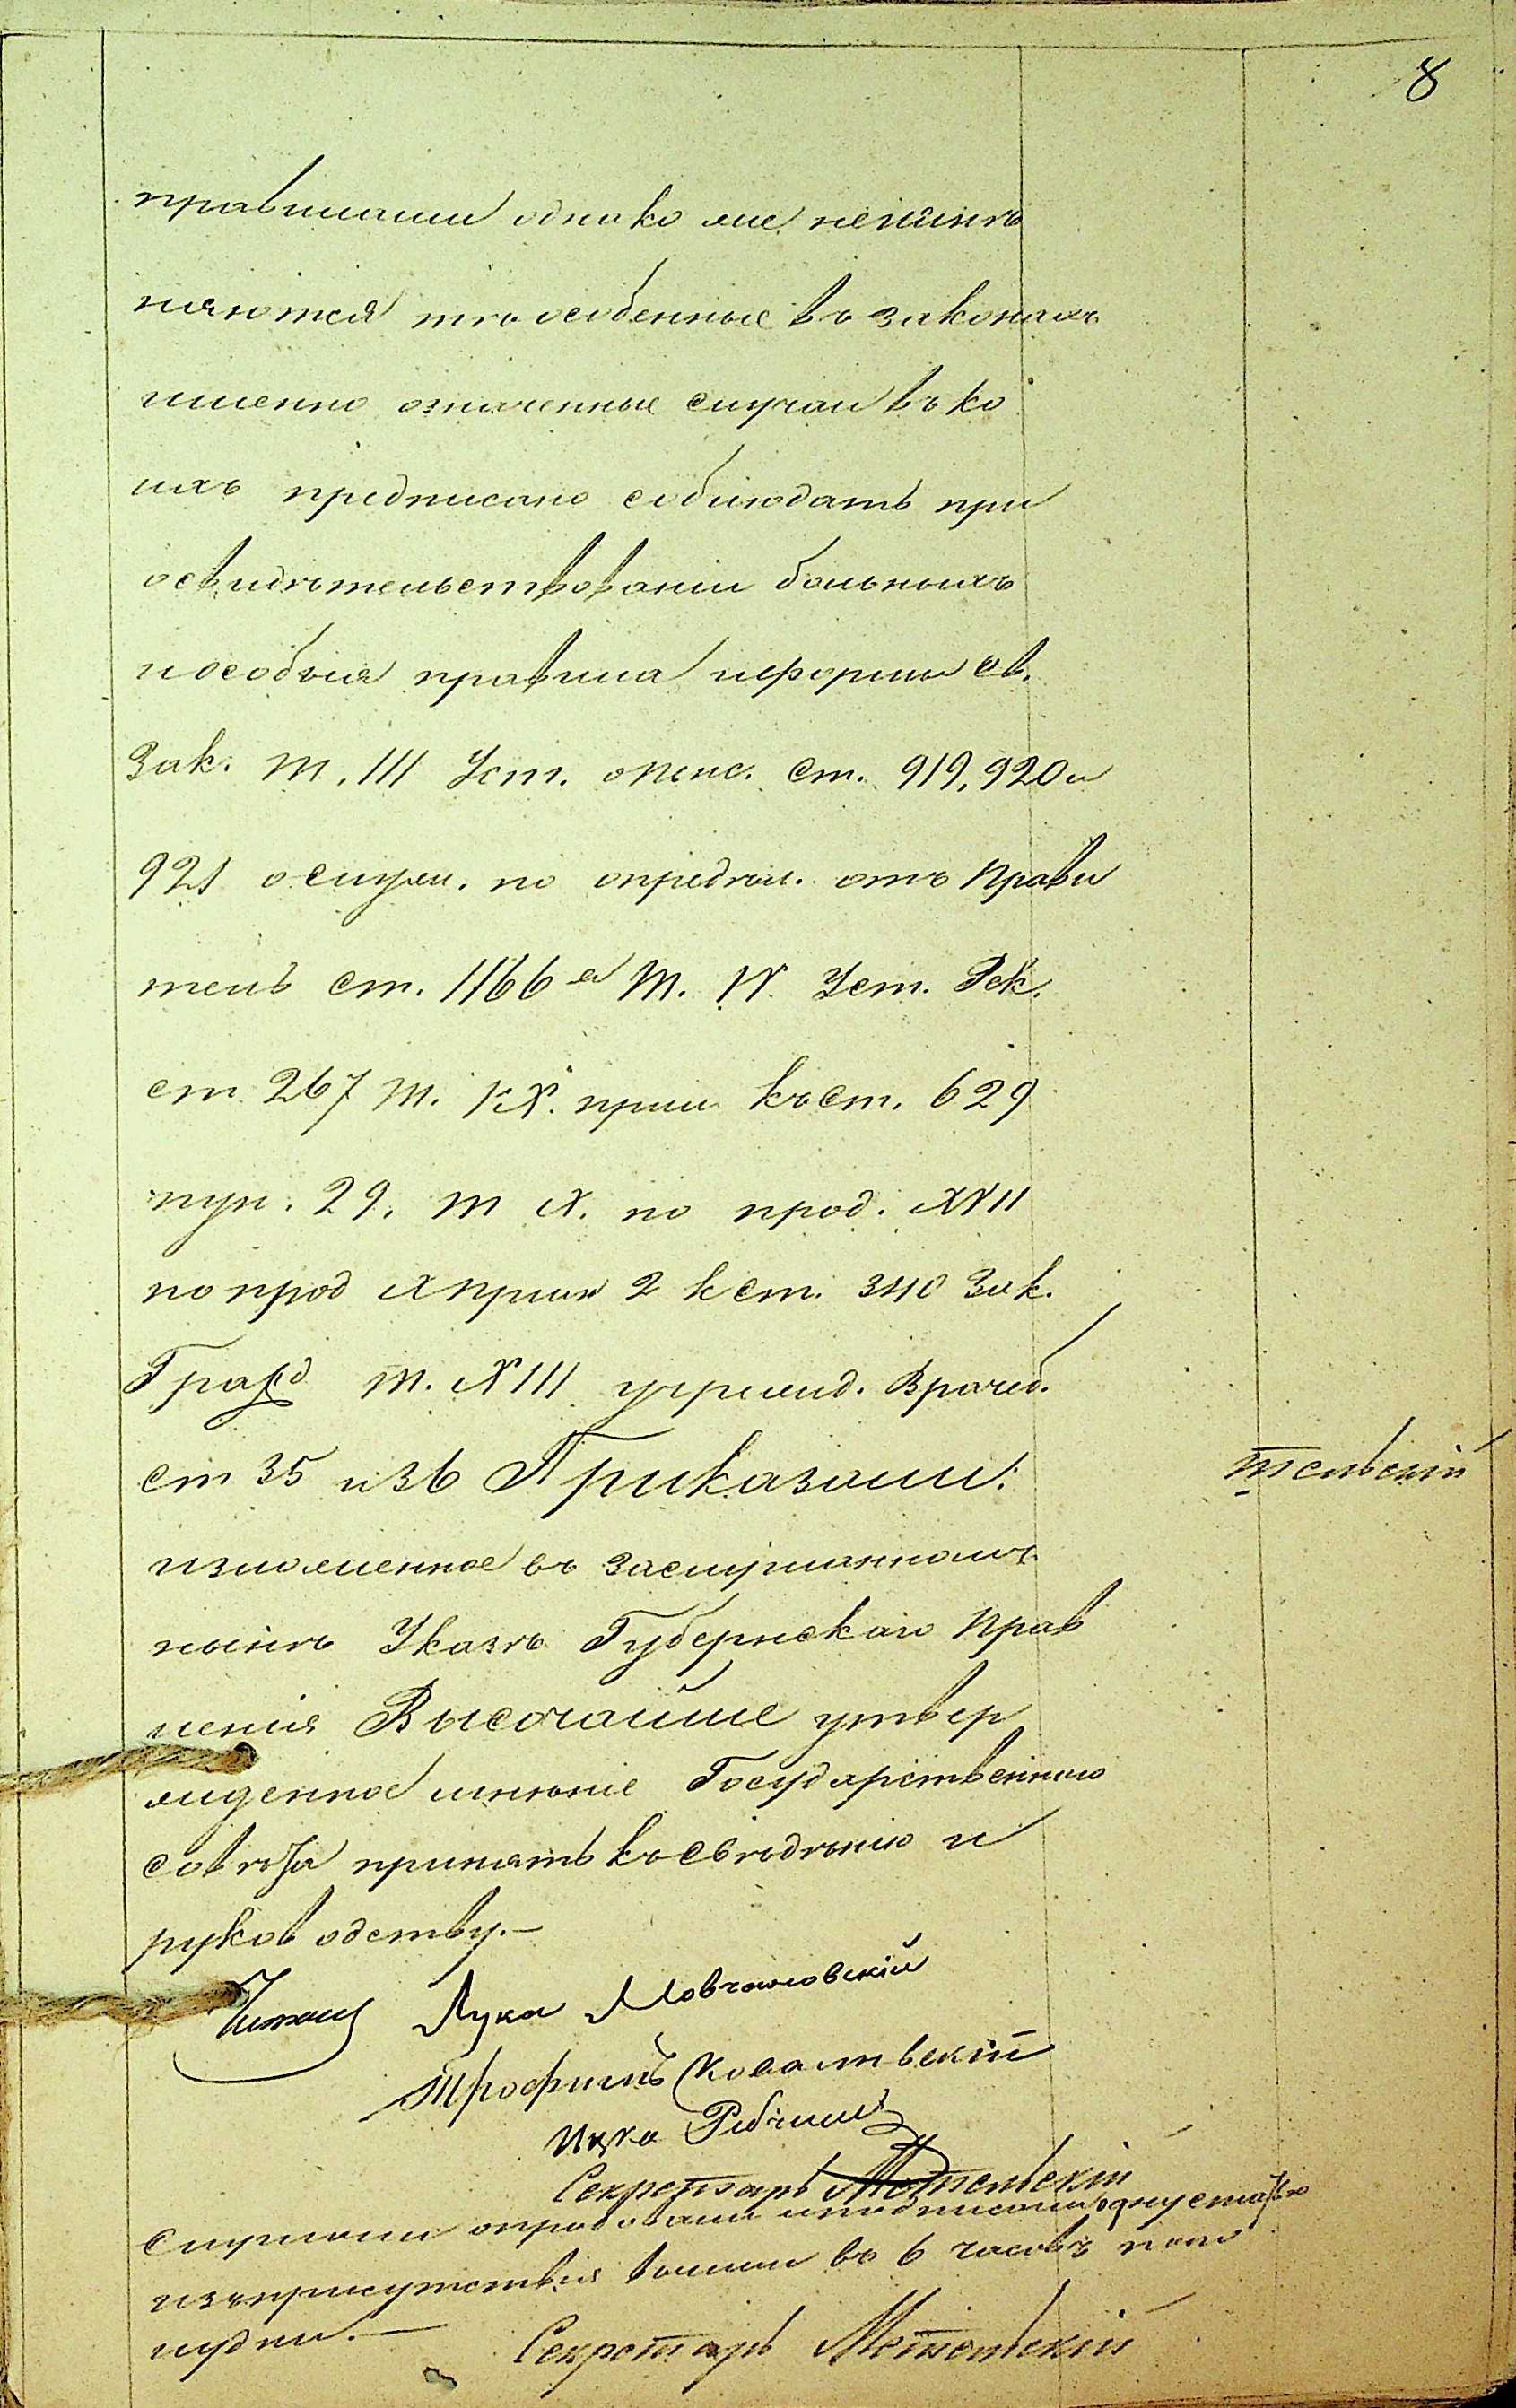 8
правилами однако же неизмѣ
няются тѣ особенные въ законахъ
именно означенные случаи въ ко
ихъ предписано соблюдать при
освидѣтельствованіи больныхъ
и особыя правила и формы Св.
Зак. Т. III Уст. о пенс. Ст. 919, 920 и
921 о служ. по опредѣл. отъ Прави
тель ст. 1166 я Т. IV. Уст. Рек.
ст 267 Т. IX. прим къ Ст. 629
пун. 29. Т X. по прод. XVII
по прод X прим 2 к ст. 340 Зак.
Гражд Т. XIII учрежд. Врачеб.
ст 35 и 36 Приказали:
тельскій
изложенное въ заслушанномъ
нынѣ Указѣ Губернскаго Прав
ленія Высочайше утвер
жденное мнѣніе Государственнаго
совѣта принять къ свѣдѣнію и
руководству.—
Лука Мовчановскій
Трофимъ Ковальвскій
Ицка
Секретарь
слушали опробовали и подписали
изъ присутствія вышли въ 6 часовъ попо
лудни.—
Секретарь